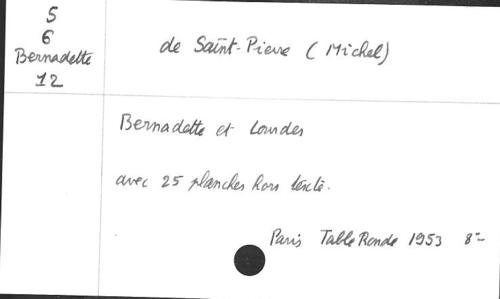 5
6
Bernadette
12
de Saint-Pierre (Michel)
Bernadette et Lourdes
avec 25 planches hors texte.
Paris Table Ronde 1953 8°